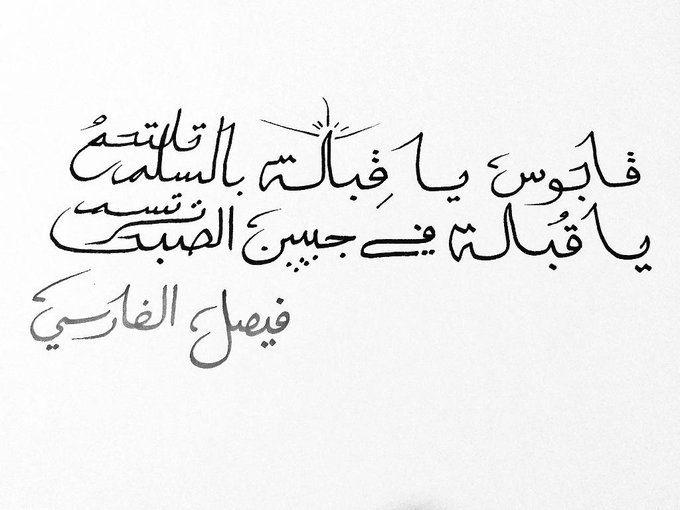 قابوس يا قِبالة بالسلم تلتحمُ
يا قُبالة في جبين الصبح ترتسم
فيصل الفارسي